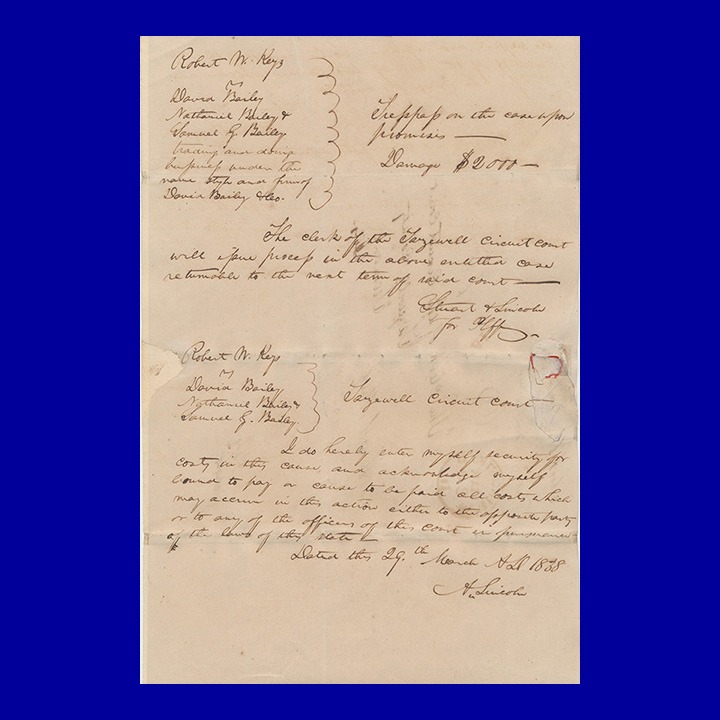 Robert W. Keys
vs
David Bailey
Nathaniel Bailey &
Samuel G. Bailey
trading and doing
business under the
name style and firm of
David Bailey & Co.
Trespass on the case upon
promises —
Damage $2000 —
The clerk of the Tazewell Circuit court
will issue process in the above entitled case
returnable to the next term of said court —
Stuart & Lincoln
for Plff
Robert W. Keys
vs
David Bailey
Nathaniel Bailey &
Samuel G. Bailey
Tazewell Circuit Court
I do hereby enter myself security for
costs in this cause, and acknowledge myself
bound to pay or cause to be paid all costs which
may accrue in this action either to the opposite party
or to any of the officers of this court in pursuance
of the laws of this state —
Dated this 29.th March AD 1838
A. Lincoln